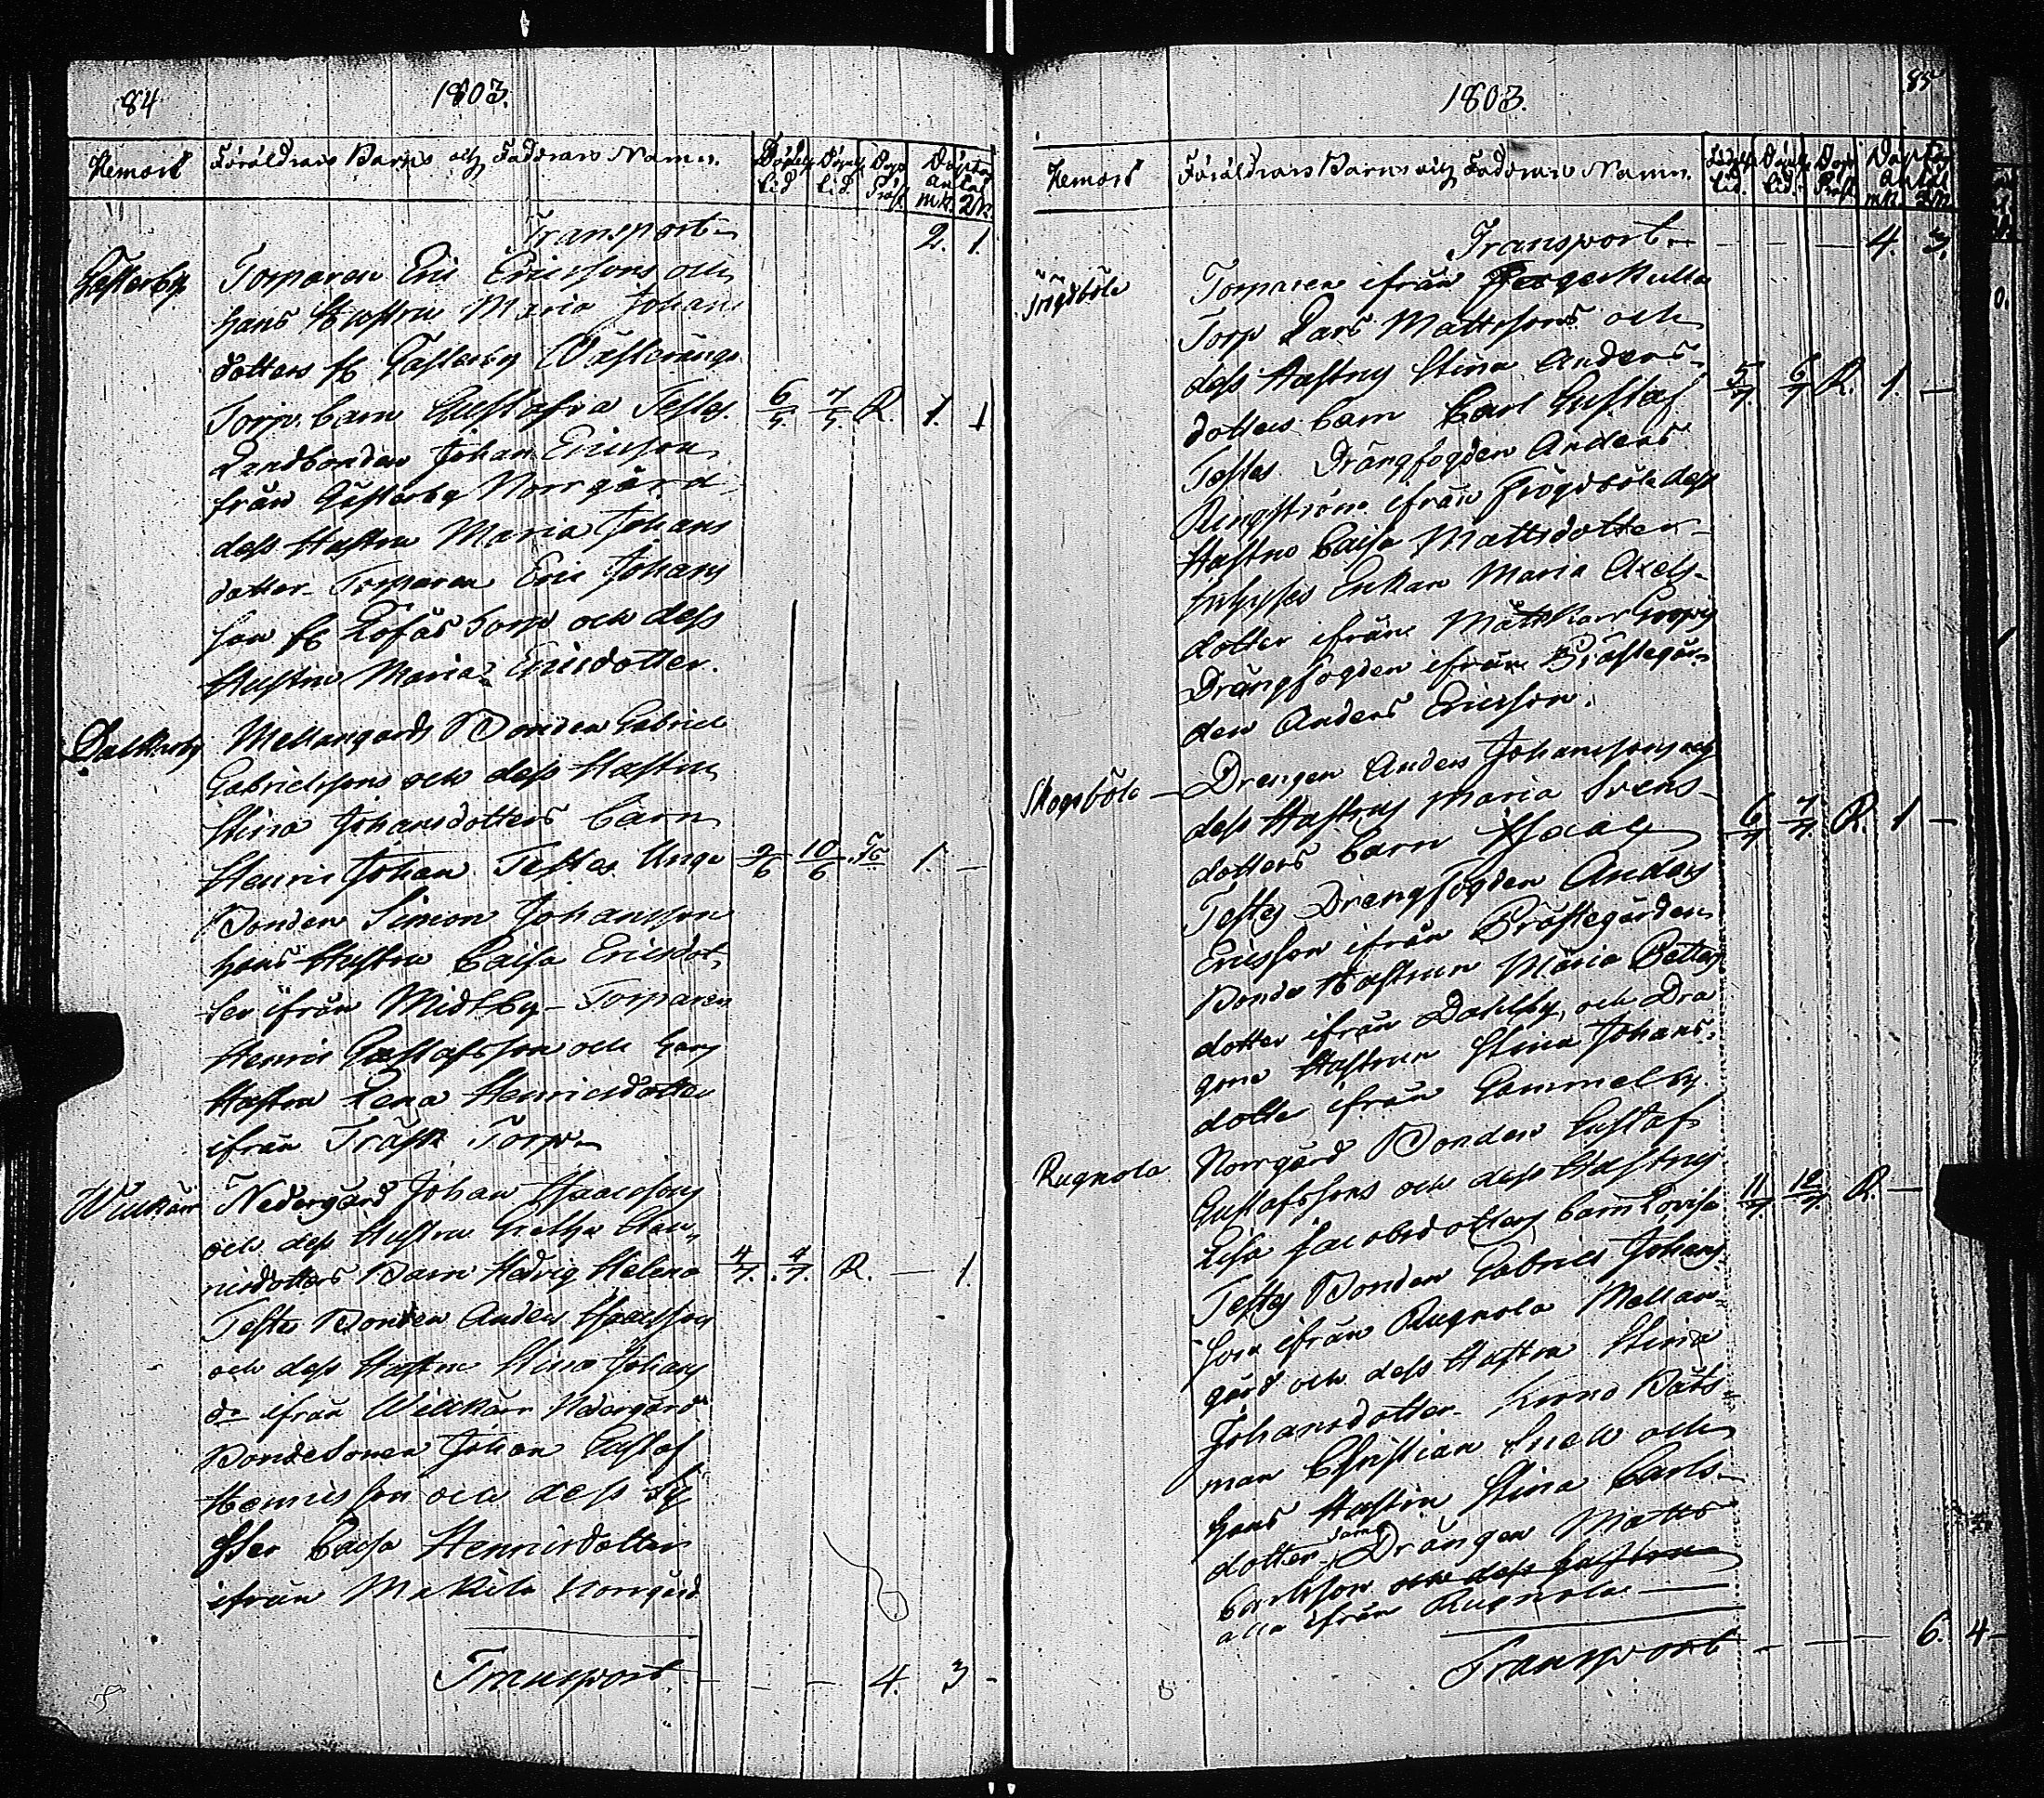 84
1803.
Hemort Föräldrars Barns och Faddrars Namn. Födelse tid Döpelse tid. Dop Präst Döptas antal mk. Qk.
Transport 2. 1
Gesterby Torparen Eric Ericssons och
hans Hustru Maria Johans
dotters fr Gesterby Västerängs
Torp. barn Gustafva Testes 6/5. 7/5. R. 1. 1
Landbonden Johan Ericsson
från Gesterby Norrgård
dess Hustru Maria Johans
dotter Torparen Eric Johans
son fr Löfås Torp och dess
Hustru Maria Ericsdotter.
Dalkarby Mellangårds Bonden Gabriel
Gabrielssons och dess Hustru
Stina Johansdotters barn
Henric Johan Testes Unga 9/6 10/6 1. —
Bonden Simon Johansson
hans Hustru Caisa Ericsdot
ter ifrån Midlby Torparen
Henric Gustafsson och hans
Hustru Lena Henricsdotter
ifrån Träsk Torp
Willkärr Nedergård Johan Isaacssons
och dess Hustru Gretha Hen
ricsdotters Barn Hedvig Helena 4/7. 4/7. R. — 1.
Testes Bonden Anders Isacsson
och dess Hustru Stina Johans
dr ifrån Willkärr Nedergård
Bondesonen Johan Gustaf
Henricsson och dess Sy
ster Caisa Henricsdotter
ifrån Makila Norrgård
Transport. — — — 4. 3 -
85
1803.
Hemort Föräldrars Barns och Faddrars Namn. Födelse tid. Döpelse tid. Dop Präst Döptas antal mk. Qk.
Transport — — — 4. 3.
Frögdböle Torparen ifrån
Torp Lars Mattssons och
dess Hustrus Stina Anders
dotters barn Carl Gustaf 5/7. 6/7 R. 1. —
Testes Drängfogden Anders
Ringström ifrån Frögdböle dess
Hustru Caisa Mattsdotter
Enkan Maria Axels
dotter ifrån
Drängfogden ifrån Prästegår
den Anders Ericsson.
Skogsböle — Drengen Anders Johanssons och
dess Hustrus Maria Svens
dotters barn Isaac 6/7 7/7. R. 1 —
Testes Drengfogden Anders
Ericsson ifrån Prästegården
Bonde Hustrun Maria Petters
dotter ifrån Dahlby, och Drä
gne Hustrun Stina Johans
dotter ifrån Gammelby.
Rugnola Norrgård Bonden Gustaf
Gustafssons och dess Hustrus
Lisa Jacobsdotters barn Lovisa 11/7. 12/7. R. —
Testes Bonden Gabriel Johans
son ifrån Rugnola Mellan
gård och dess Hustru Stina
Johansdotter. Krono Båts
man Christian och
hans Hustru Stina Carls
dotter, samt Drängen Matts
Carlsson och dess hustru
alla ifrån Rugnola
Transport — — 6. 4 -